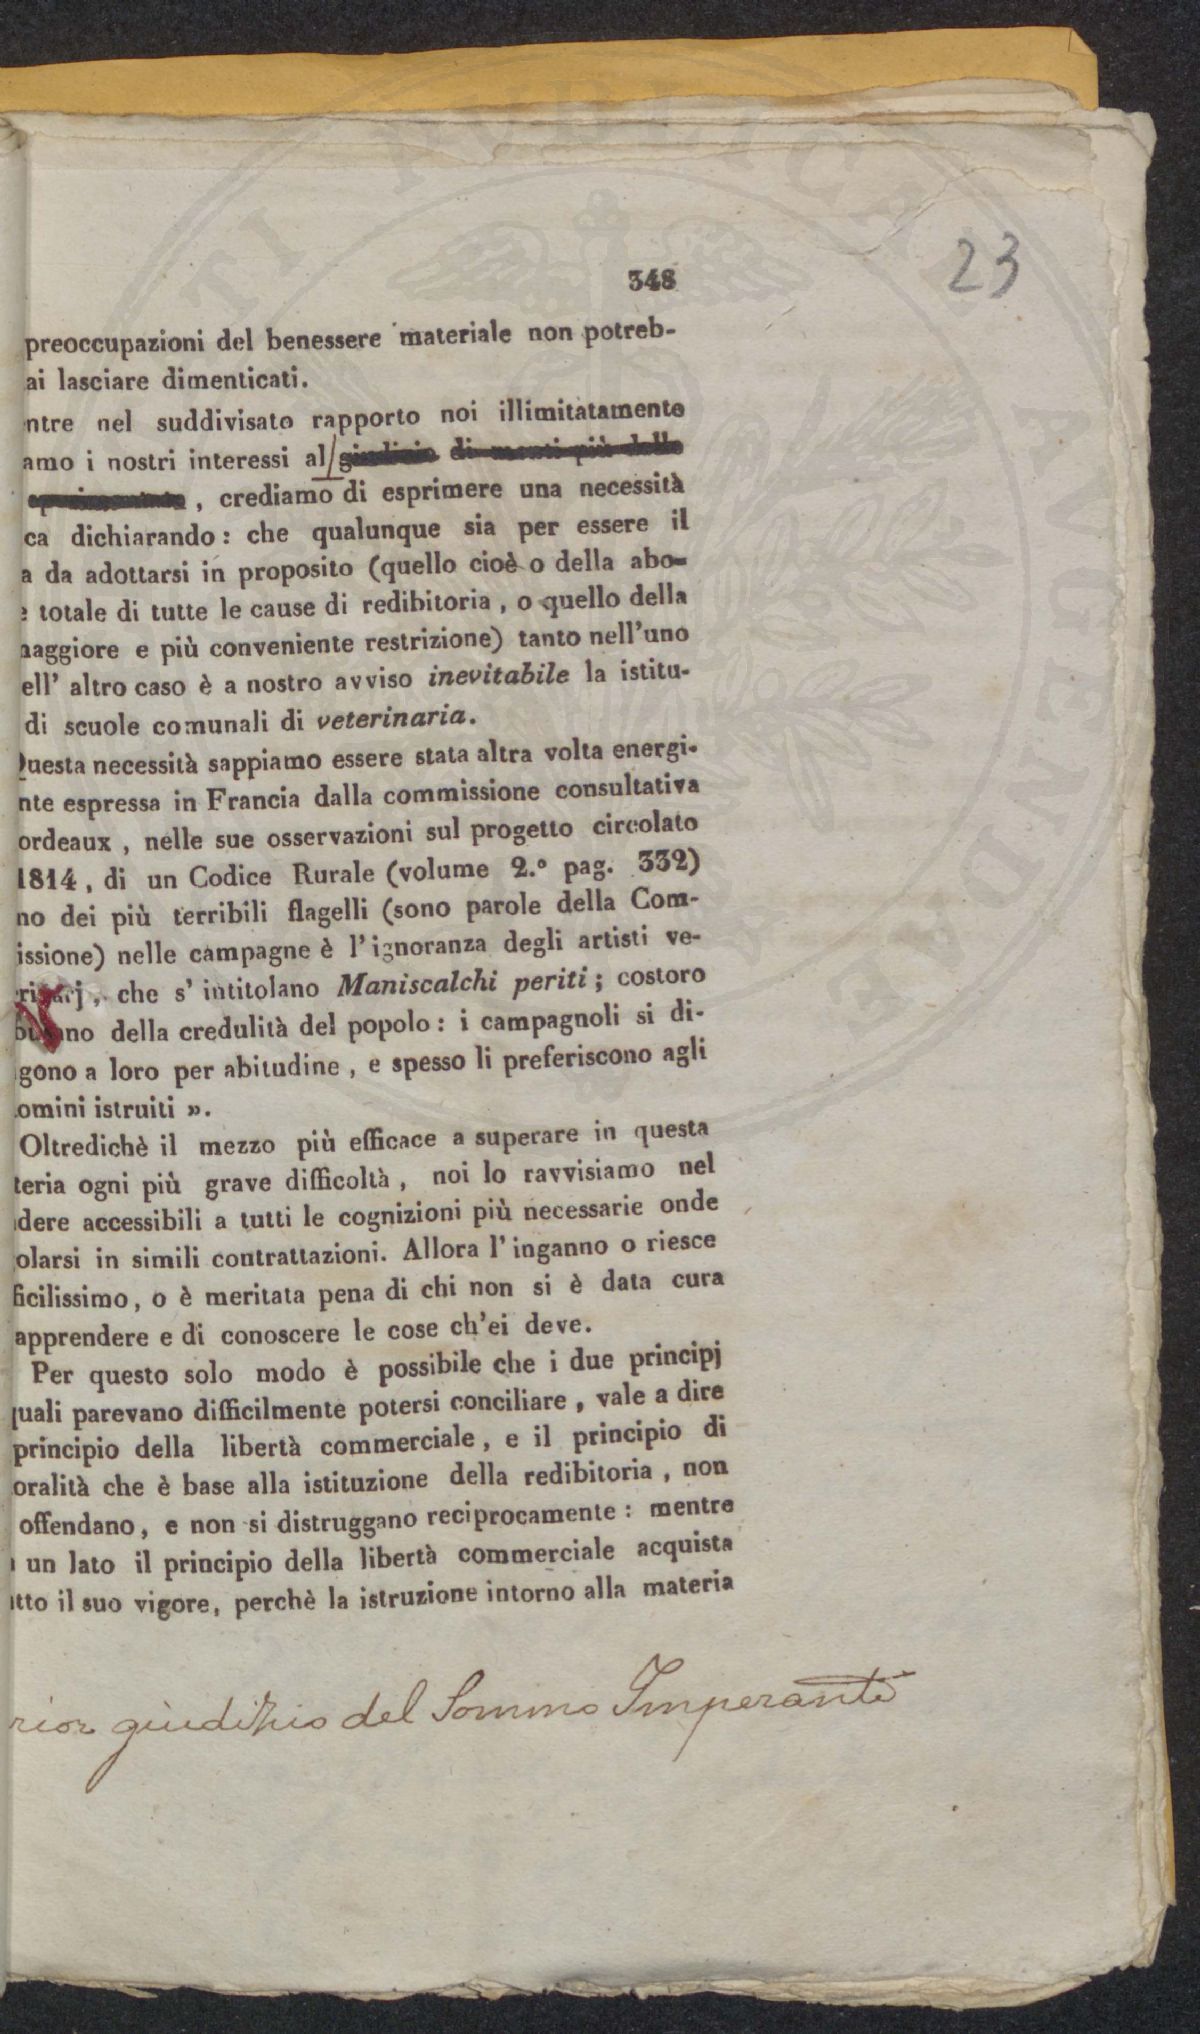 23
348
preoccupazioni del benessere materiale non potreb-
ai lasciare dimenticati.
ntre nel suddivisato rapporto noi illimitatamente
amo i nostri interessi al giudizio di menti più delle
, crediamo di esprimere una necessità
ca dichiarando: che qualunque sia per essere il
a da adottarsi in proposito (quello cioè o della abo-
e totale di tutte le cause di redibitoria, o quello della
maggiore e più conveniente restrizione) tanto nell'uno
ell' altro caso è a nostro avviso inevitabile la istitu-
di scuole comunali di veterinaria.
Questa necessità sappiamo essere stata altra volta energi-
nte espressa in Francia dalla commissione consultativa
ordeaux, nelle sue osservazioni sul progetto circolato
1814, di un Codice Rurale (volume 2.° pag. 332)
no dei più terribili flagelli (sono parole della Com-
issione) nelle campagne è l'ignoranza degli artisti ve-
rinarj, che s' intitolano Maniscalchi periti; costoro
busano della credulità del popolo: i campagnoli si di-
gono a loro per abitudine, e spesso li preferiscono agli
omini istruiti ».
Oltredichè il mezzo più efficace a superare in questa
teria ogni più grave difficoltà, noi lo ravvisiamo nel
dere accessibili a tutti le cognizioni più necessarie onde
olarsi in simili contrattazioni. Allora l'inganno o riesce
ficilissimo, o è meritata pena di chi non si è data cura
apprendere e di conoscere le cose ch'ei deve.
Per questo solo modo è possibile che i due principj
quali parevano difficilmente potersi conciliare, vale a dire
principio della libertà commerciale, e il principio di
oralità che è base alla istituzione della redibitoria, non
offendano, e non si distruggano reciprocamente: mentre
un lato il principio della libertà commerciale acquista
tto il suo vigore, perchè la istruzione intorno alla materia
rior giudizio del Sommo Imperante